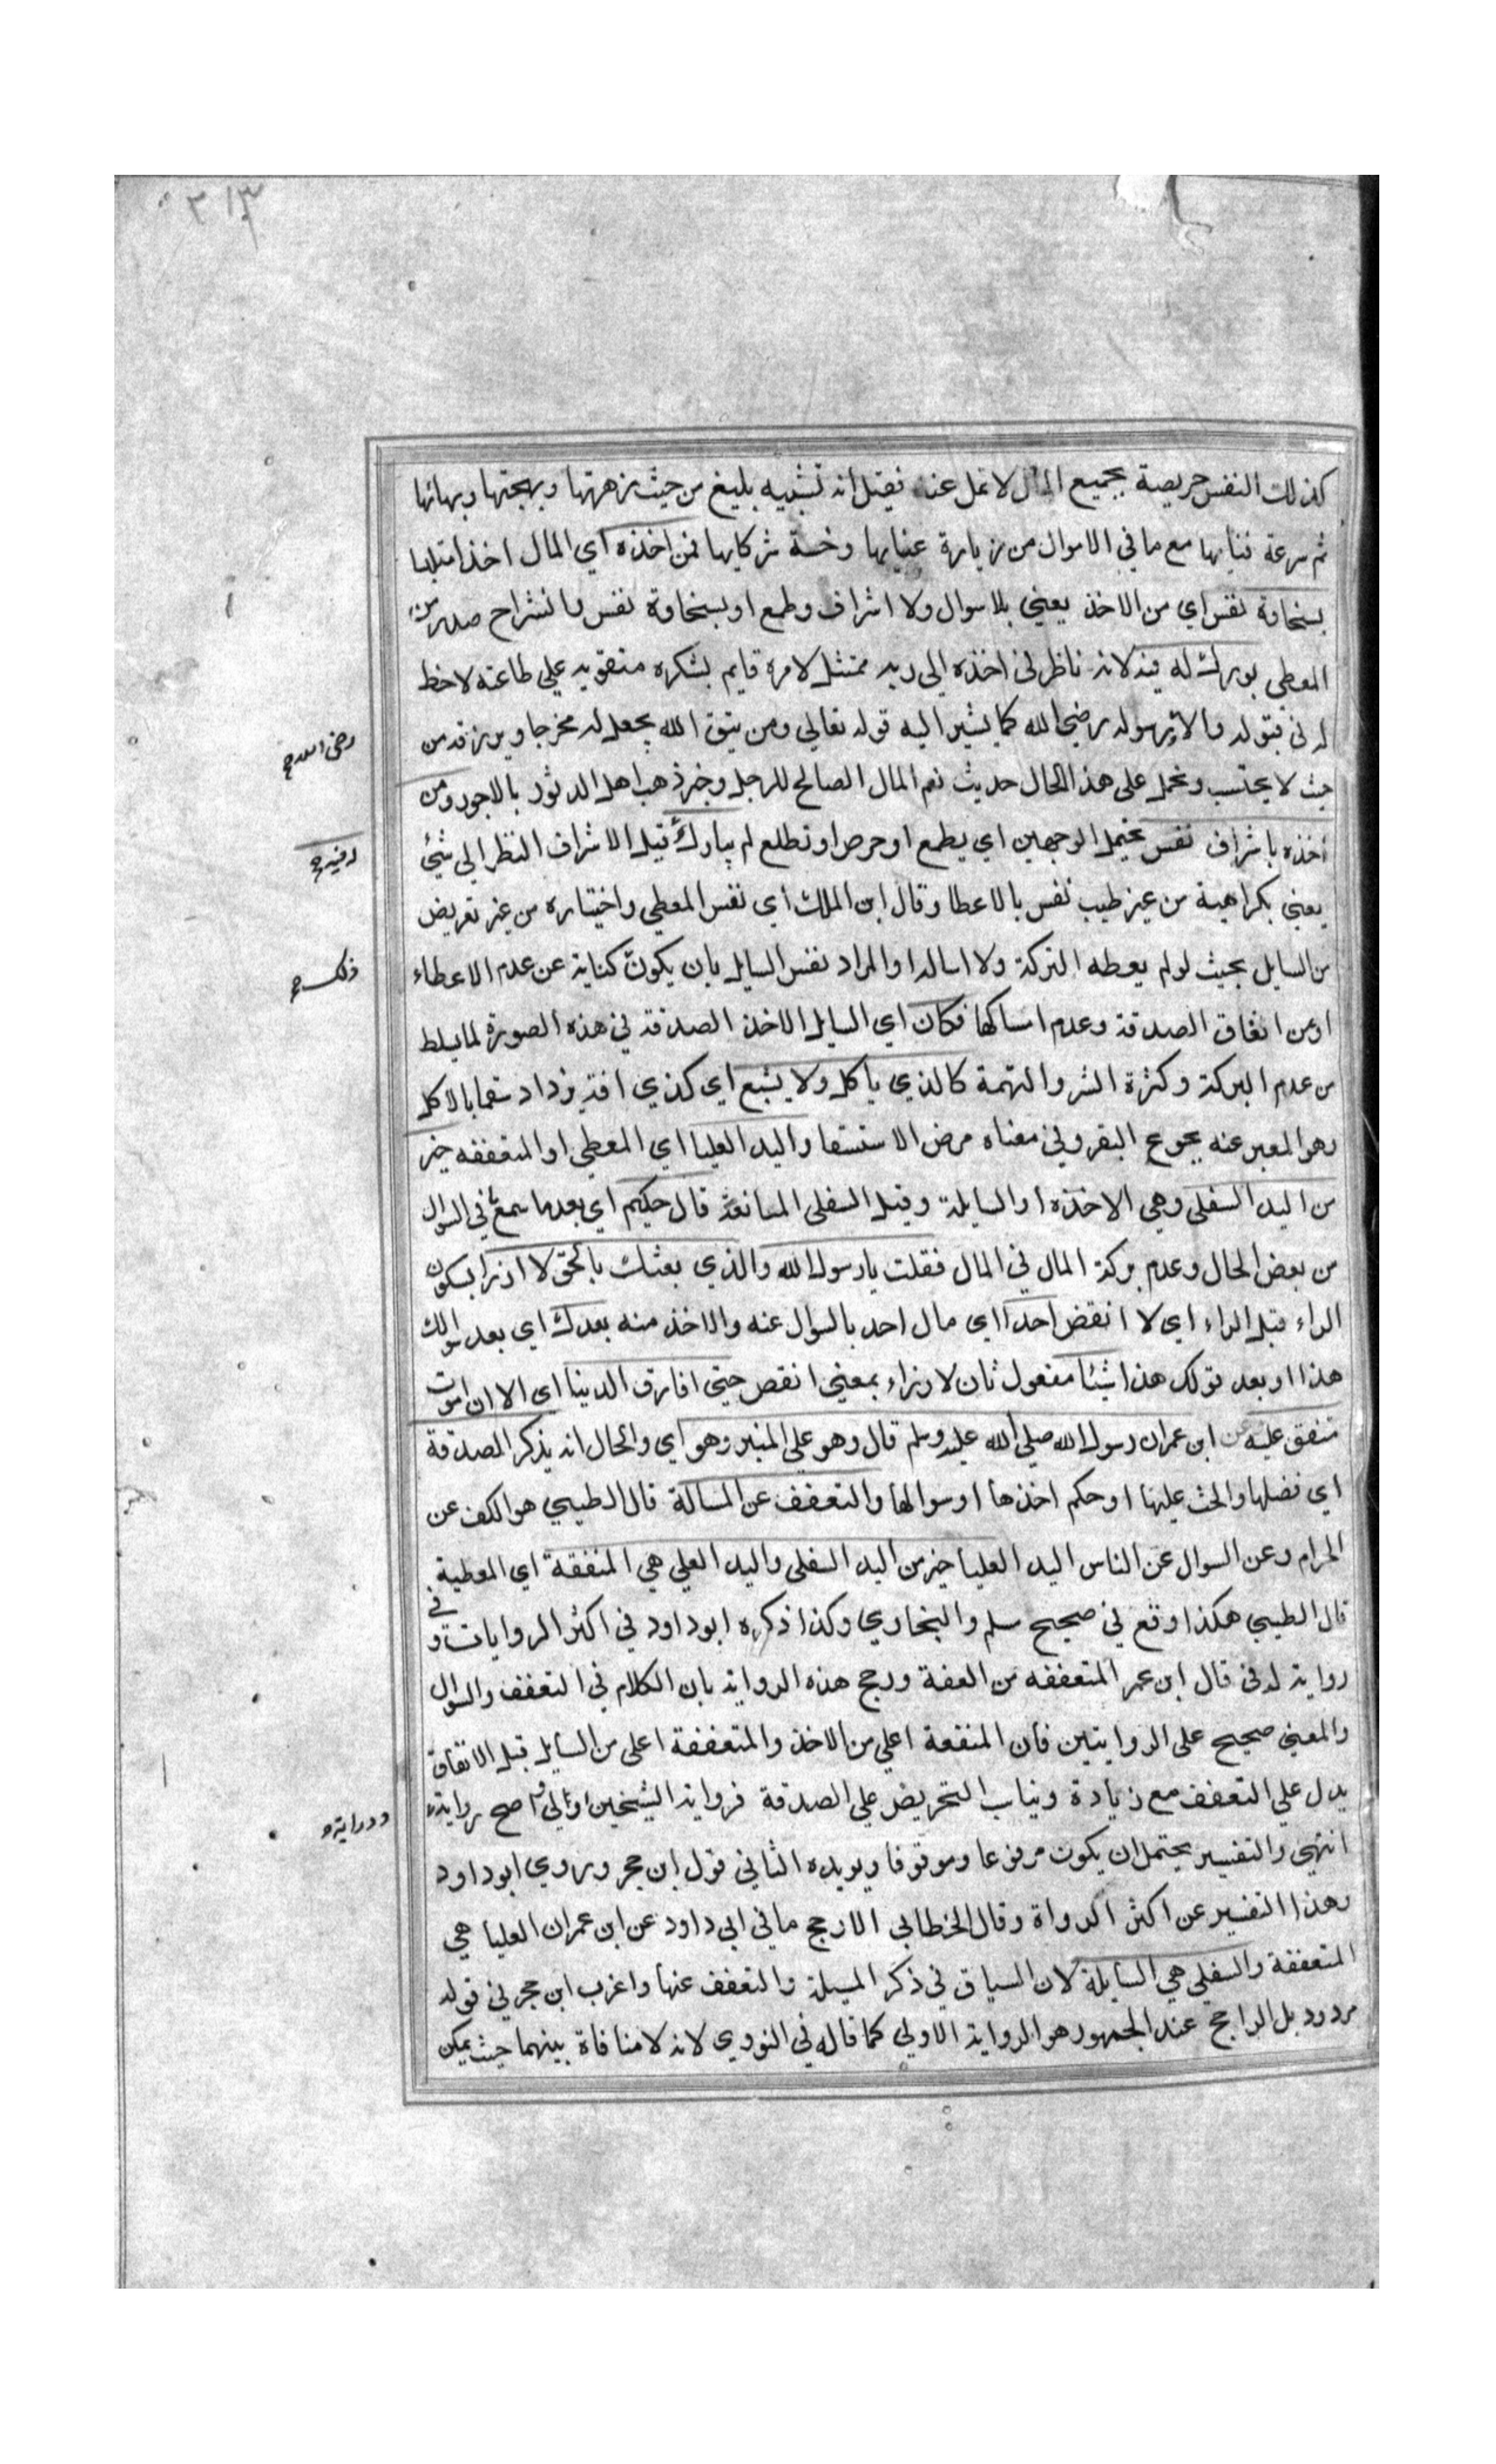 ٣١٣
كذلك النفس حريصة بجميع المال لا تمل عنه فقيل انه تشبيه بليغ من حيث زهرتها وبهجتها وبهائها
ثم سرعة فنايها مع ما في الاموال من زيارة عنايها وخسة شركايها فمن اخذه اي المال اخذا متلبسا
بسخاوة نفس اي من الاخذ يعني بلا سوال ولا اشراف وطمع او بسخاوة نفس وانشراح صدر من
المعطي بورك له فيه لانه ناظر في اخذه الى ربه ممتثل لامره قايم بشكره متقو به علي طاعته لا حظ
له في قبوله والا رضى الله كما يشير اليه قوله تعالي ومن يتق الله يجعل له مخرجا ويرزقه من
رضي الله صح
حيث لا يحتسب ويحمل على هذا الحال حديث نعم المال الصالح للرجل وخبر ذهب اهل الدثور بالاجور ومن
اخذه باشراف نفس يحتمل الوجهين اي بطمع او حرص او تطلع لم يبارك قيل الاشراف النظر الي شئ
له فيه صح
يعني بكراهية من غير طيب نفس بالاعطا وقال ابن الملك اي نفس المعطي واختياره من غير تعريض
من السايل بحيث لو لم يعطه التركة ولا اسالدا والمراد نفس السايل بان يكون كناية عن عدم الاعطاء
ذلك صح
او عن انفاق الصدقة وعدم امساكها فكان اي السايل الاخذ الصدقة في هذه الصورة لما يسلط
من عدم البركة وكثرة الشر والتهمة كالذي ياكل ولا يشبع اي كذي افة يزداد سقما بالاكل
وهو المعبر عنه بجوع البقر وفي معناه مرض الاستسقا واليد العليا اي المعطي او المتعففه خير
من اليد السفلى وهي الاخذه او السايلة وقيل السفلى المانعة قال حكيم اي بعد ما سمع في السوال
من بعض الحال وعدم بركة المال في المال فقلت يا رسول الله والذي بعثك بالحق لا ارزا بسكون
الراء قبل الزاء اي لا انقض احدا اي مال احد بالسوال عنه والاخذ منه بعدك اي بعد سوالك
هذا او بعد قولك هذا شيئا مفعول ثان لارزاء بمعني انقص حتي افارق الدنيا اى الا ان اموت
متفق عليه عن ابن عمر ان رسول الله صلي الله عليه وسلم قال وهو علي المنبر وهو اي والحال انه يذكر الصدقة
اي فضلها والحث عليها او حكم اخذها او سوالها والتعفف عن المسالة قال الطيبي هو الكف عن
الحرام وعن السوال عن الناس اليد العليا خير من اليد السفلى واليد العلي هي المنفقة اي المعطية
قال الطيبي هكذا وقع في صحيح مسلم والبخاري وكذا ذكره ابو داود في اكثر الروايات وفي
رواية له في قال ابن عمر المتعففه من العفة ورجح هذه الرواية بان الكلام في التعفف والسوال
والمعني صحيح على الروايتين فان المنفعة اعلي من الاخذ والمتعففة اعلى من السايل قيل الانفاق
يدل علي التعفف مع زيادة ويناب التحريض علي الصدقة فرواية الشيخين اولى واصح رواية
ودراية صح
انتهى والتفسير يحتمل ان يكون مرفوعا وموقوفا ويويده الثاني قول ابن حجر وروي ابو داود
وهذا التفسير عن اكثر الرواة وقال الخطابي الارجح ما في ابي داود عن ابن عمر ان العليا هي
المتعففة والسفلي هي السايلة لان السياق في ذكر المسيلة والتعفف عنها واغرب ابن حجر في قوله
مردود بل الراجح عند الجمهور هو الرواية الاولي كما قاله في النووي لانه لا منافاة بينهما حيث يمكن